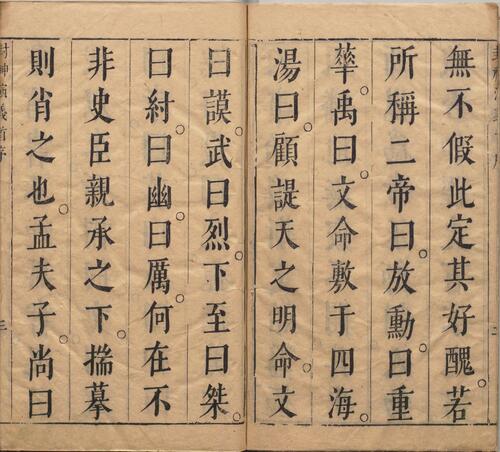 無不假此定其好醜。若
所稱二帝曰放勳。曰重
華。禹曰文命敷于四海。
湯曰顧諟天之明命。文
曰謨。武曰烈。下至曰桀
曰紂。曰幽曰厲。何在不
非史臣親承之下。揣摹
則肖之也。孟夫子。尚曰
封神演義首序
三